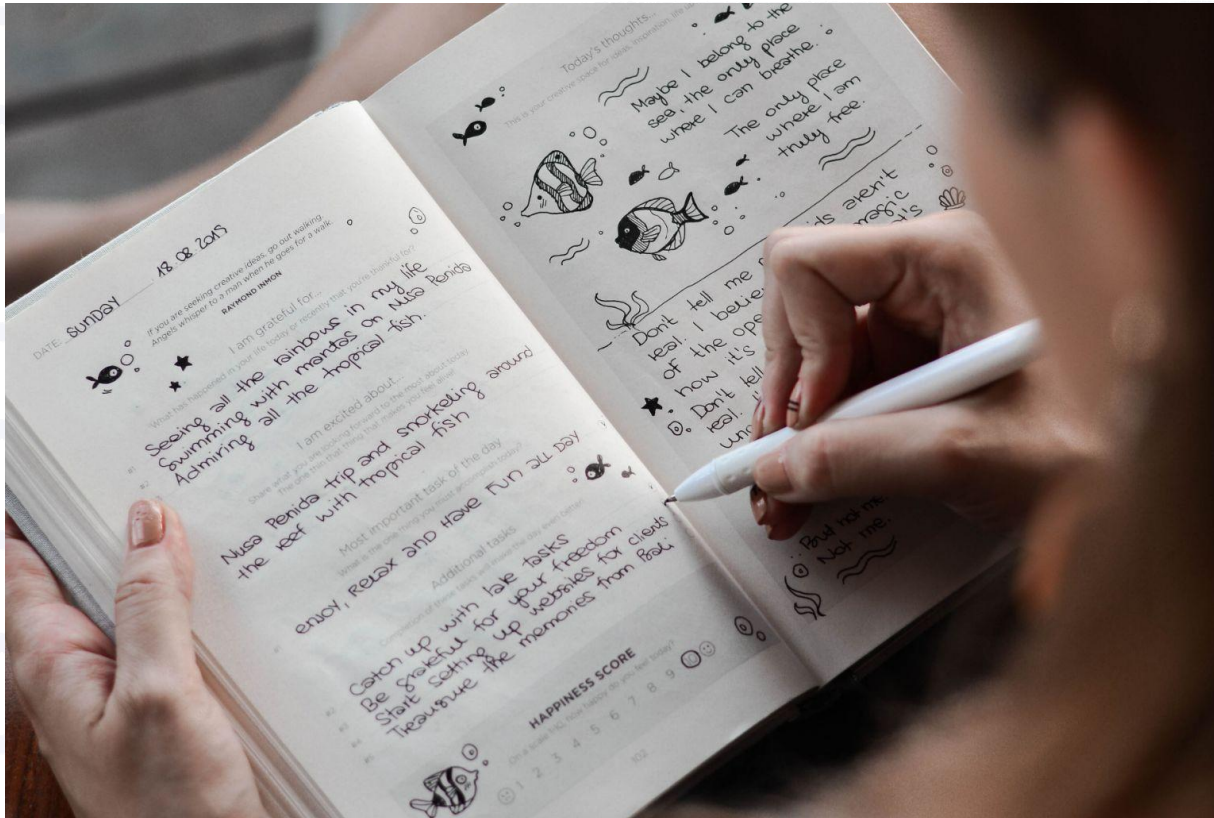 DATE: SUNDAY 18.08.2019
If you are seeking creative ideas, go out walking.
Angels whisper to a man when he goes for a walk.
RAYMOND INMON
I am grateful for...
What has happened in your life today or recently that you're thankful for?
Seeing all the rainbows in my life
Swimming with mantas on Nusa Penida
Admiring all the tropical fish.
I am excited about...
Share what you are looking forward to the most about today
The one thing that makes you feel alive
Nusa Penida trip and snorkeling around
the reef with tropical fish
Most important task of the day
What is the one thing you must accomplish today?
ENJOY, RELAX AND HAVE FUN ALL DAY
Additional tasks
Completion of these tasks will make the day even better
Catch up with late tasks
Be grateful for your freedom
Start setting up websites for clients
Treasure the memories from Bali
HAPPINESS SCORE
On a scale 1-10, how happy do you feel today?
1 2 3 4 5 6 7 8 9 10
102
Today's thoughts...
This is your creative space for ideas, inspiration, life
Maybe I belong to the
sea, the only place
where I can breathe.
The only place
where I am
truly free.
Don't tell me aren't
real. I magic
of the
how it's
Don't tell
real.
But not me.
Not me.